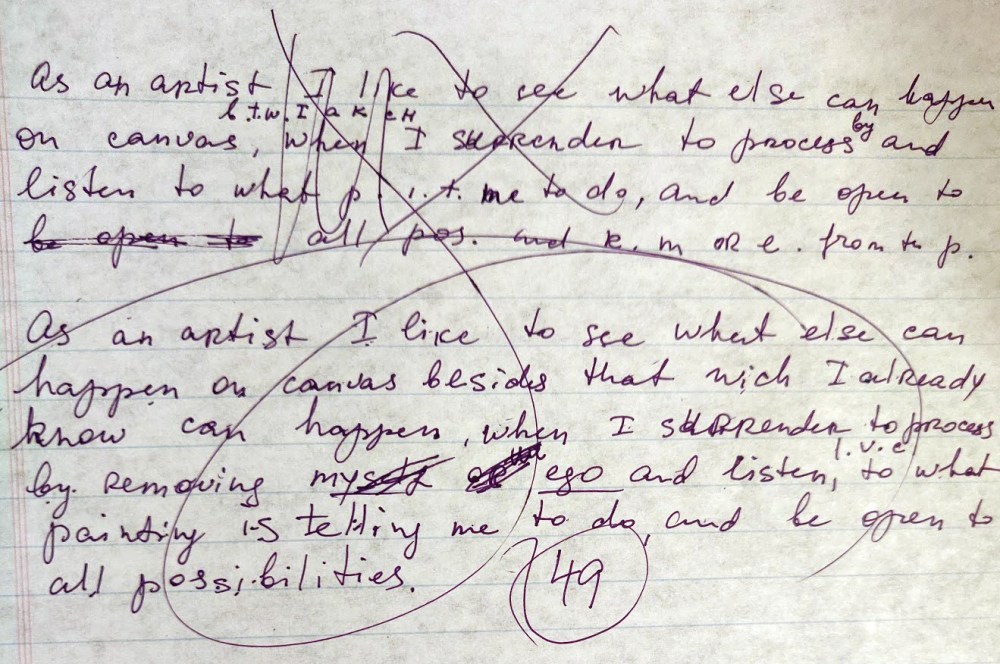 As an artist I like to see what else can happen
b.t.w. I a k c H
on canvas, when I surrender to process by and
listen to what p. i. t. me to do, and be open to
be open to all pos. and k. m OR e. from th p.
As an artist I like to see what else can
happen on canvas besides that wich I already
know can happen, when I surrender to process
by removing my ego and listen, I.v.e. to what
painting is telling me to do, and be open to
all possibilities.
49